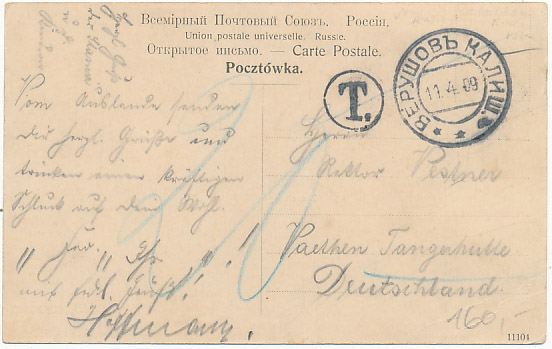 Всемірный Почтовый Союзъ. Россія.
Union postale universelle. Russie.
Открытое письмо. — Carte Postale.
Pocztówka.
T.
ВЕРУШОВЪ КАЛИШ.
11.4.09
Vom Auslande senden
die herzl. Grüße und
trinken einen kräftigen
Schluck auf dem Wohl
Hoffmann.
Herrn
Rektor Pestner
Vaethen Tangerhütte
Deutschland
20
160,-
11104